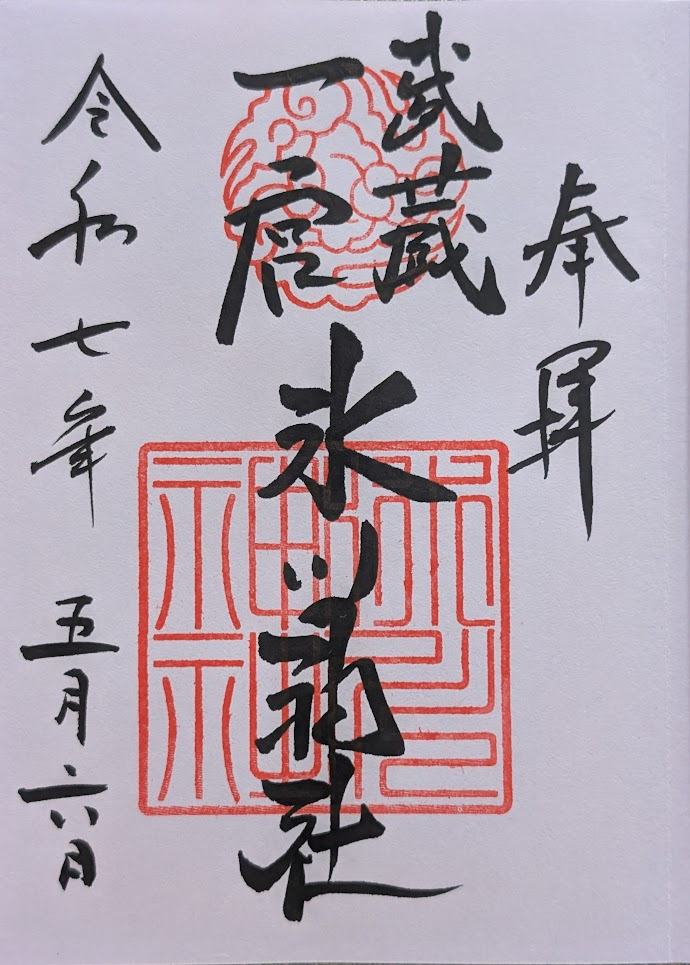 奉拝
武蔵
一宮
氷川神社
令和七年 五月六日